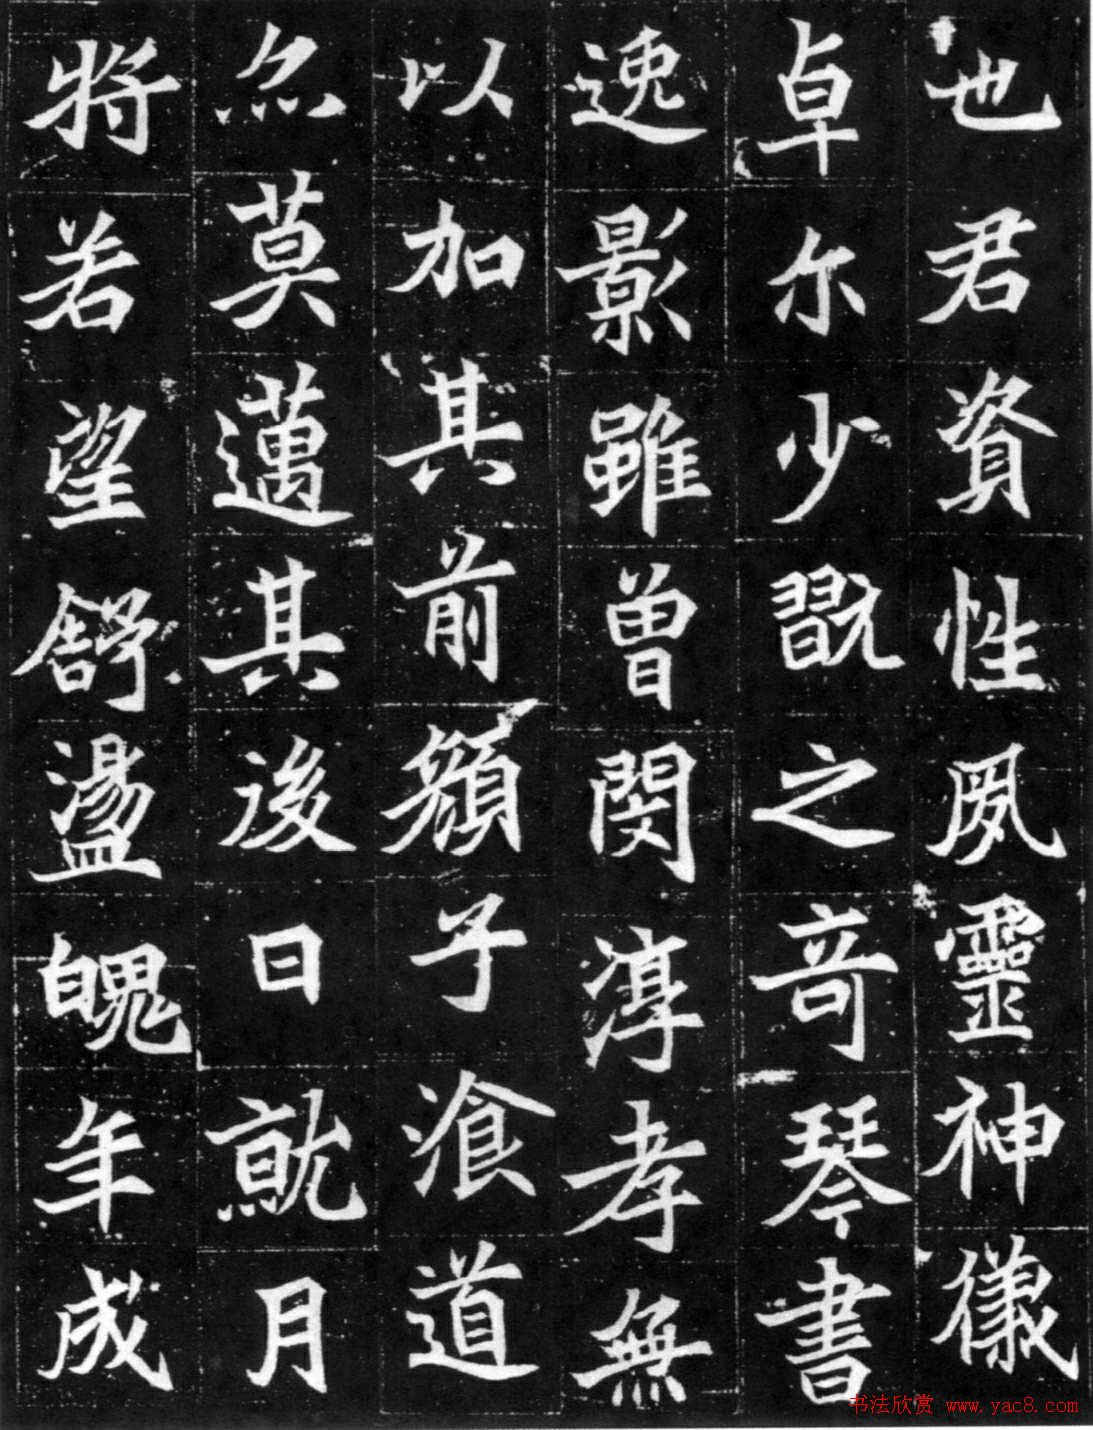 也君資性夙靈神儀
卓尔少翫之奇琴書
逸影雖曾閔淳孝無
以加其前顏子湌道
亦莫邁其後日就月
將若望舒盪魄年成
书法欣赏 www.yac8.com